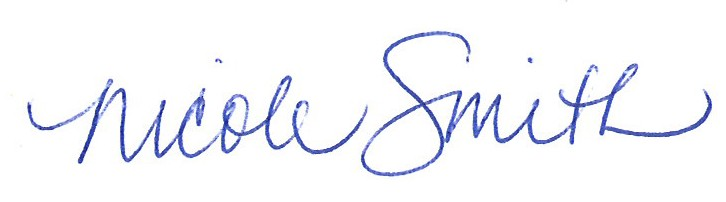 Nicole Smith